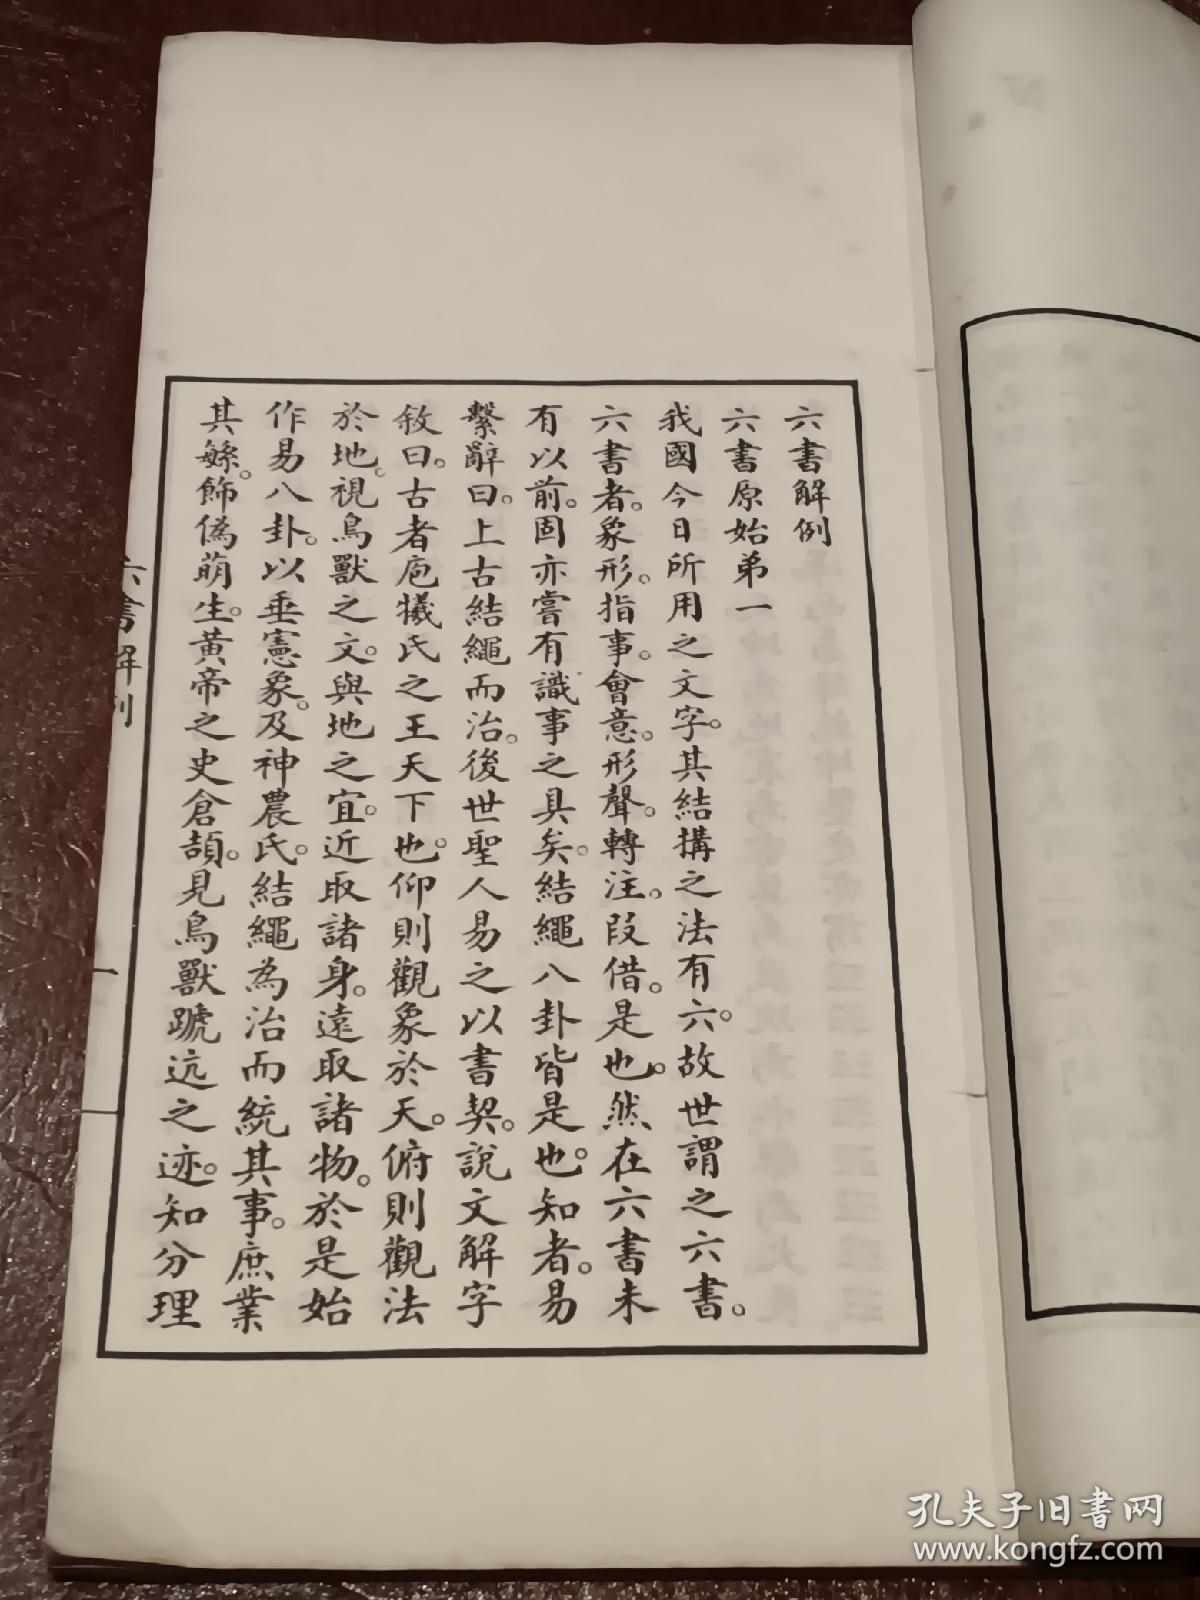 六書解例
六書原始弟一
我國今日所用之文字。其結搆之法有六。故世謂之六書。
六書者。象形。指事。會意。形聲。轉注。叚借。是也。然在六書未
有以前。固亦嘗有識事之具矣。結繩八卦皆是也。知者。易
繫辭曰。上古結繩而治。後世聖人易之以書契。說文解字
敘曰。古者庖犧氏之王天下也。仰則觀象於天。俯則觀法
於地。視鳥獸之文。與地之宜。近取諸身。遠取諸物。於是始
作易八卦。以垂憲象。及神農氏。結繩為治而統其事。庶業
其緐。飾偽萌生。黃帝之史倉頡。見鳥獸蹏迒之迹。知分理
六書解例
一
孔夫子旧书网
www.kongfz.com